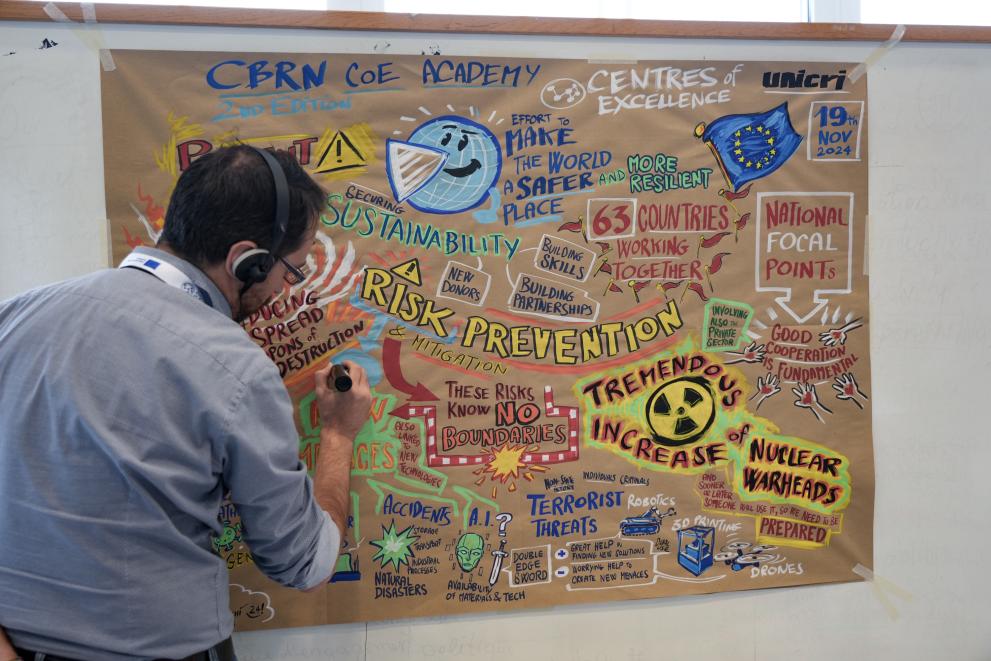 CBRN CoE ACADEMY
2ND EDITION
CENTRES of
EXCELLENCE
unicri
19TH
NOV
2024
EFFORT TO
MAKE
THE WORLD
A SAFER
PLACE
AND MORE
RESILIENT
SECURING
SUSTAINABILITY
NEW
DONORS
BUILDING
SKILLS
BUILDING
PARTNERSHIPS
63 COUNTRIES
WORKING
TOGETHER
NATIONAL
FOCAL
POINTS
RISK PREVENTION
& MITIGATION
INVOLVING
ALSO THE
PRIVATE
SECTOR
GOOD
COOPERATION
IS FUNDAMENTAL
SPREAD
OF
DESTRUCTION
THESE RISKS
KNOW NO
BOUNDARIES
TREMENDOUS
INCREASE of
NUCLEAR
WARHEADS
AND
SOONER
OR LATER
SOMEONE WILL USE IT, SO WE NEED TO BE
PREPARED
ALSO
LINKED
TO
NEW
TECHNOLOGIES
ACCIDENTS
STORAGE
TRANSPORT
INDUSTRIAL
PROCESSES
NATURAL
DISASTERS
A.I. ?
AVAILABILITY
OF MATERIALS & TECH
DOUBLE
EDGE
SWORD
+ GREAT HELP IN
FINDING NEW SOLUTIONS
- WORRYING HELP TO
CREATE NEW MENACES
NON-STATE
ACTORS
INDIVIDUAL CRIMINALS
TERRORIST
THREATS
ROBOTICS
3D PRINTING
DRONES
24!